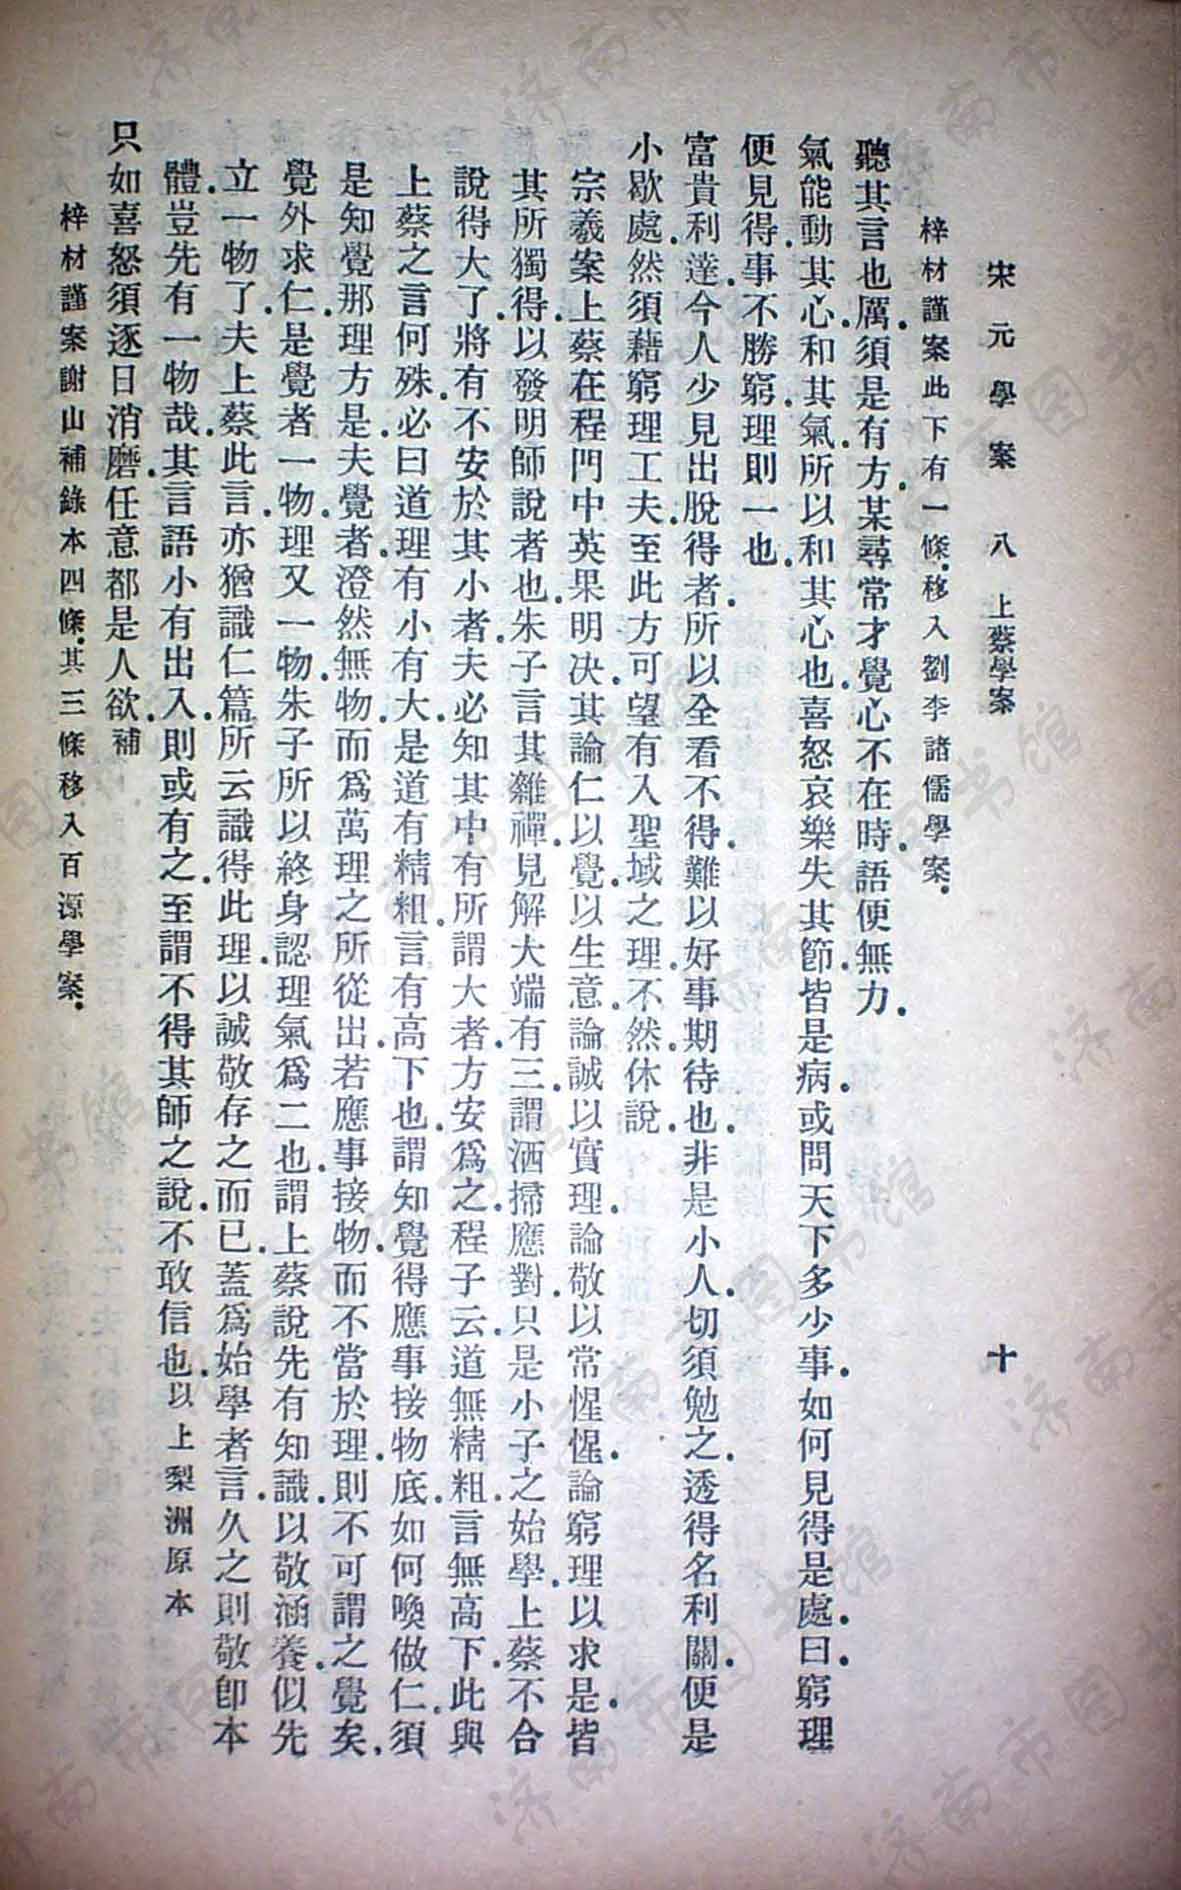 宋元學案 八 上蔡學案 十
梓材謹案此下有一條.移入劉李諸儒學案.
聽其言也厲.須是有力.某尋常才覺心不在時.語便無力.
氣能動其心.和其氣.所以和其心也.喜怒哀樂失其節.皆是病.或問天下多少事.如何見得是處.曰.窮理
便見得.事不勝窮.理則一也.
富貴利達.今人少見出脫得者.所以全看不得.難以好事期待也.非是小人.切須勉之.透得名利關.便是
小歇處.然須藉窮理工夫.至此方可望有入聖域之理.不然休說.
宗羲案上蔡在程門中英果明決.其論仁以覺.以生意.論誠以實理.論敬以常惺惺.論窮理以求是.皆
其所獨得.以發明師說者也.朱子言其雜禪.見解大端有三.謂洒掃應對.只是小子之始學.上蔡不合
說得大了.將有不安於其小者.夫必知其中有所謂大者.方安為之.程子云.道無精粗.言無高下.此與
上蔡之言何殊.必曰道理有小有大.是道有精粗.言有高下也.謂知覺得應事接物底.如何喚做仁.須
是知覺那理方是.夫覺者.澄然無物.而為萬理之所從出.若應事接物.而不當於理.則不可謂之覺矣.
覺外求仁.是覺者一物.理又一物.朱子所以終身認理氣為二也.謂上蔡說先有知識.以敬涵養.似先
立一物了.夫上蔡此言.亦猶識仁篇所云識得此理.以誠敬存之而已.蓋為始學者言.久之則敬卽本
體.豈先有一物哉.其言語小有出入.則或有之.至謂不得其師之說.不敢信也.以上梨洲原本
只如喜怒須逐日消磨.任意都是人欲.補
梓材謹案謝山補錄本四條.其三條移入百源學案.